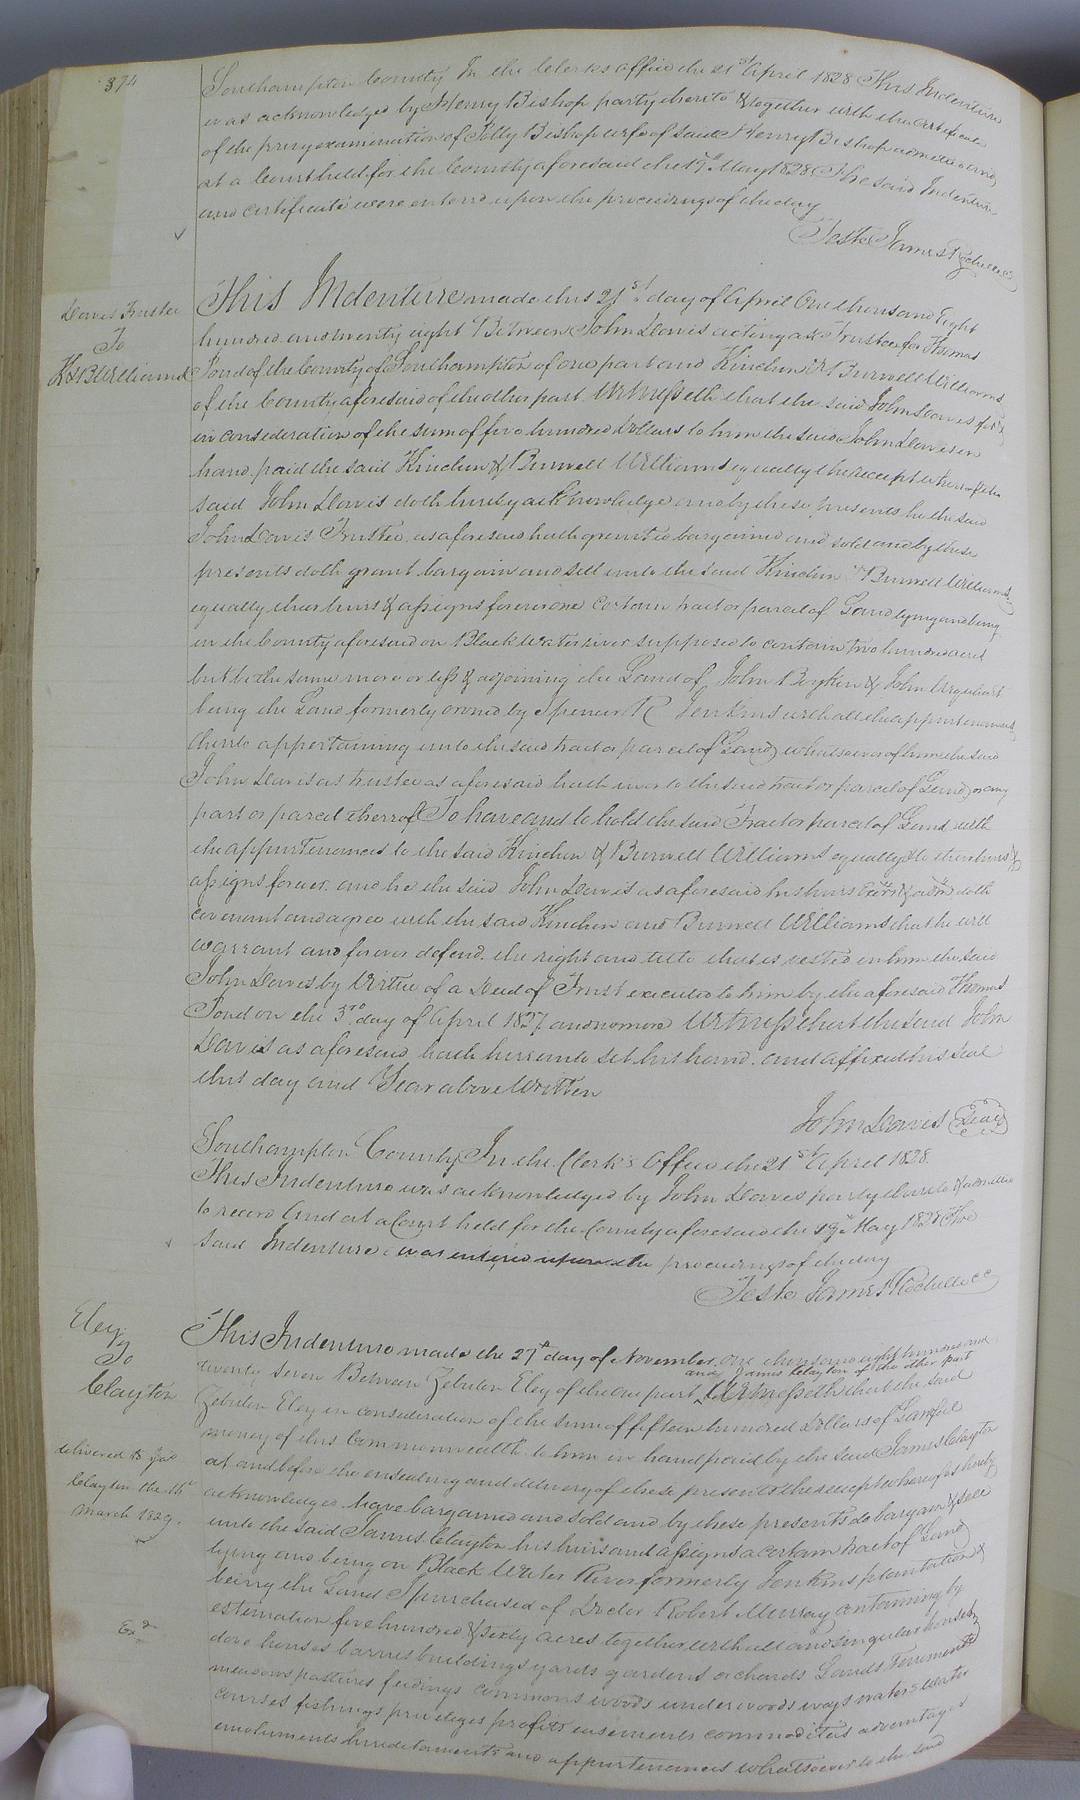 374
Southampton County In the Clerks office the 21st April 1828 This Indenture
was acknowledged by Henry Bishop party thereto & together with the certificate
of the privy examination of Polly Bishop wife of said Henry Bishop admitted to record
at a Court held for the County aforesaid the 19th May 1828 The said Indenture
and certificate were entered upon the proceedings of the day
Teste James Rochelle CC
Davis Trustee
To
K & B Williams
This Indenture made this 21st day of April One thousand Eight
hundred and twenty eight Between John Davis acting as Trustee for Thomas
Pond of the County of Southampton of one part and Kinchen & Burwell Williams
of the County aforesaid of the other part Witnesseth that the said John Davis for &
in consideration of the sum of five hundred Dollars to him the said John Davis in
hand paid the said Kinchen & Burwell Williams equally the receipt whereof the
said John Davis doth hereby acknowledge and by these presents he the said
John Davis Trustee as aforesaid hath granted bargained and sold and by these
presents doth grant bargain and sell unto the said Kinchen & Burwell Williams
equally their heirs & assigns forever one certain tract or parcel of Land lying and being
in the County aforesaid on Black Water river supposed to contain two hundred acres
but be the same more or less & adjoining the Land of John Boykin & John Urquhart
being the Land formerly owned by Spencer R Jenkins with all the appurtenances
thereto appertaining unto the said tract or parcel of Land whatsoever of him the said
John Davis as trustee as aforesaid hath in or to the said tract or parcel of Land or any
part or parcel thereof To have and to hold the said Tract or parcel of Land with
the appurtenances to the said Kinchen & Burwell Williams equally to their heirs &
assigns forever and he the said John Davis as aforesaid his heirs Exers & adm doth
covenant and agree with the said Kinchen and Burwell Williams that he will
warrant and forever defend the right and title that is vested in him the said
John Davis by Virtue of a Deed of Trust executed to him by the aforesaid Thomas
Pond on the 3rd day of April 1827 and no more Witness that the said John
Davis as aforesaid hath hereunto set his hand and affixed his seal
this day and Year above Written
John Davis Seal
Southampton County In the Clerk's Office the 21st April 1828
This Indenture was acknowledged by John Davis party thereto & admitted
to record And at a Court held for the County aforesaid the 19th May 1828 The
said Indenture was entered upon the proceedings of the day
Teste James Rochelle CC
Eley
To
Clayton
delivered to Jas
Clayton the 14th
March 1829.
Exd
This Indenture made the 27th day of November one thousand eight hundred and
twenty seven Between Zebulon Eley of the one part and James Clayton of the other part Witnesseth that the said
Zebulon Eley in consideration of the sum of fifteen hundred Dollars of Lawful
money of this Commonwealth to him in hand paid by the said James Clayton
at and before the ensealing and delivery of these presents the receipt whereof is hereby
acknowledged have bargained and sold and by these presents do bargain & sell
unto the said James Clayton his heirs and assigns a certain tract of Land
lying and being on Black Water River formerly Jenkins plantation &
being the Land I purchased of Doctor Robert Murray containing by
estimation five hundred & sixty acres together with all and singular houses
dove houses barns buildings yards gardens orchards Lands Tenements
meadows pastures feedings commons woods underwoods ways waters water
courses fishings priviledges profits easements commodities advantages
emoluments hereditaments and appurtenances whatsoever to the said